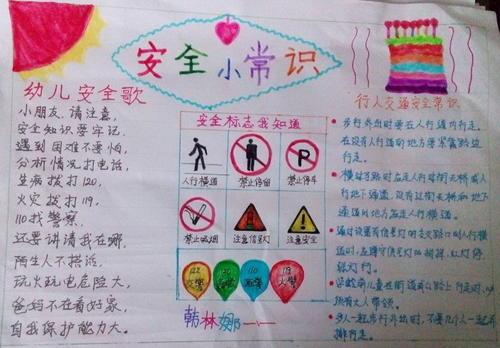 安全小常识
幼儿安全歌
小朋友,请注意,
安全知识要牢记,
遇到困难不要怕,
分析情况打电话,
生病拨打120,
火灾拨打119,
110找警察,
还要讲清我在哪,
陌生人不搭讪,
玩火玩电危险大,
爸妈不在看好家,
自我保护能力大。
安全标志我知道
人行横道
禁止停留
P
禁止停车
禁止吸烟
注意信号灯
注意安全
122
交警
120
110
119
火警
韩林娜
行人交通安全常识
步行外出时要在人行道内行走,
在没有人行道的地方要靠路边
行走。
横过马路时应走人行过街天桥或人
行地下通道,没有过街天桥和地下
通道的地方应走人行横道。
通过设置有信号灯的交叉路口的人行横
道时,应遵守信号灯的指挥,红灯停,
绿灯行。
学龄前儿童在街道或公路上行走时,
须有大人带领。
多人一起步行外出时,不要几个人一起并
排行走。